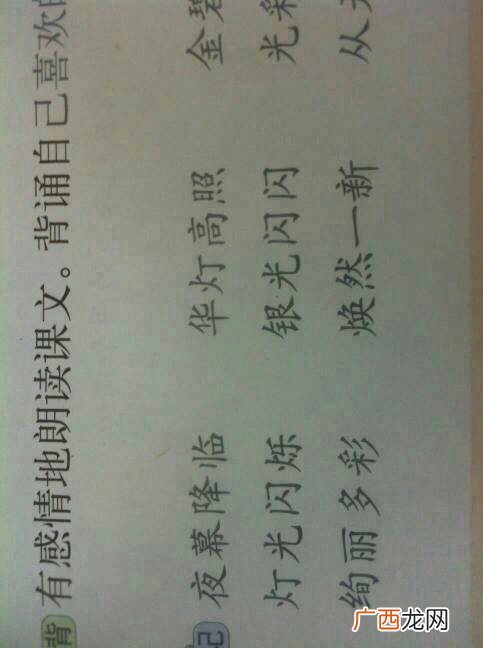 背 有感情地朗读课文。背诵自己喜欢的
记 夜幕降临 华灯高照 金碧
灯光闪烁 银光闪闪 光彩
绚丽多彩 焕然一新 从
广西龙网